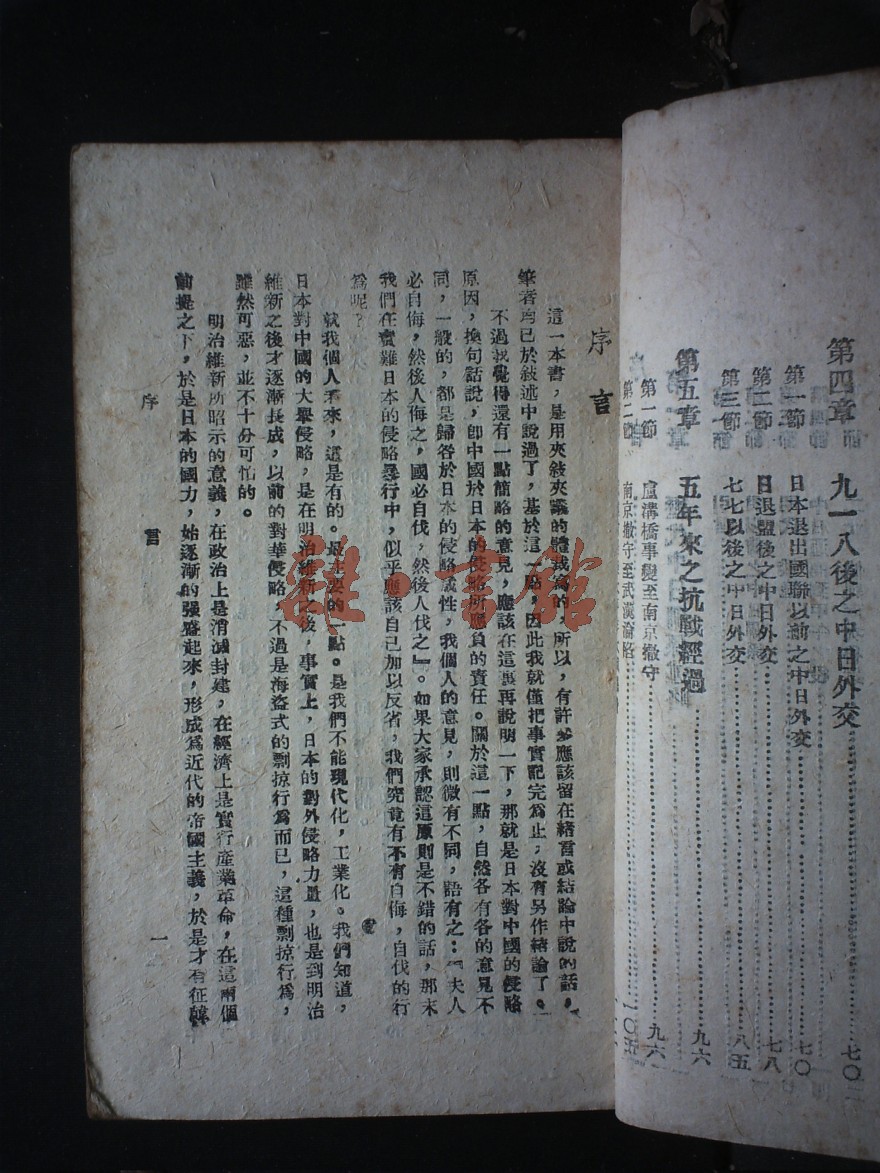 第四章　九一八後之中日外交……七〇
第一節　日本退出國聯以前之中日外交……七〇
第二節　日退盟後之中日外交……七八
第三節　七七以後之中日外交……八五
第五章　五年來之抗戰經過……九六
第一節　盧溝橋事變至南京撤守……九六
第二節　南京撤守至武漢淪陷……一〇五
序言
這一本書，是用夾敍夾議的體裁寫的，所以，有許多應該留在緒言或結論中說的話，
筆者均已於敍述中說過了，基於這一點，因此我就僅把事實記完爲止，沒有另作緒論了。
不過我覺得還有一點簡略的意見，應該在這裏再說明一下，那就是日本對中國的侵略
原因，換句話說，卽中國於日本的侵略所應負的責任。關於這一點，自然各有各的意見不
同，一般的，都是歸咎於日本的侵略 性，我個人的意見，則微有不同，語有之：『夫人
必自侮，然後人侮之，國必自伐，然後人伐之』。如果大家承認這原則是不錯的話，那末
我們在責難日本的侵略暴行中，似乎應該自己加以反省，我們究竟有不有自侮，自伐的行
爲呢？
就我個人看來，這是有的。最主要的一點。是我們不能現代化，工業化。我們知道，
日本對中國的大舉侵略，是在明治維新之後，事實上，日本的對外侵略力量，也是到明治
維新之後才逐漸長成，以前的對華侵略，不過是海盜式的剽掠行爲而已，這種剽掠行爲，
雖然可惡，並不十分可怕的。
明治維新所昭示的意義，在政治上是消滅封建，在經濟上是實行產業革命，在這兩個
前提之下，於是日本的國力，始逐漸的强盛起來，形成爲近代的帝國主義，於是才有征韓
序　言
一
雜·書館